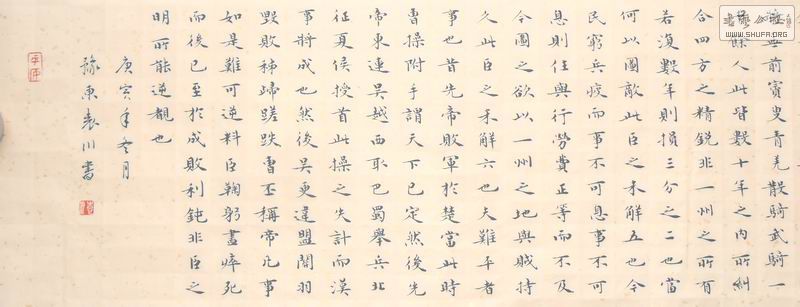 無前賨叟青羌散騎武騎一
餘人此皆數十年之內所糾
合四方之精銳非一州之所有
若復數年則損三分之二也當
何以圖敵此臣之未解五也今
民窮兵疲而事不可息事不可
息則住與行勞費正等而不及
今圖之欲以一州之地與賊持
久此臣之未解六也夫難平者
事也昔先帝敗軍於楚當此時
曹操附手謂天下已定然後先
帝東連吳越西取巴蜀舉兵北
征夏侯授首此操之失計而漢
事將成也然後吳更違盟關羽
毀敗秭歸蹉跌曹丕稱帝凡事
如是難可逆料臣鞠躬盡瘁死
而後已至於成敗利鈍非臣之
明所能逆覩也
庚寅年冬月
豫東袁川書
WWW.SHUFA.ORG